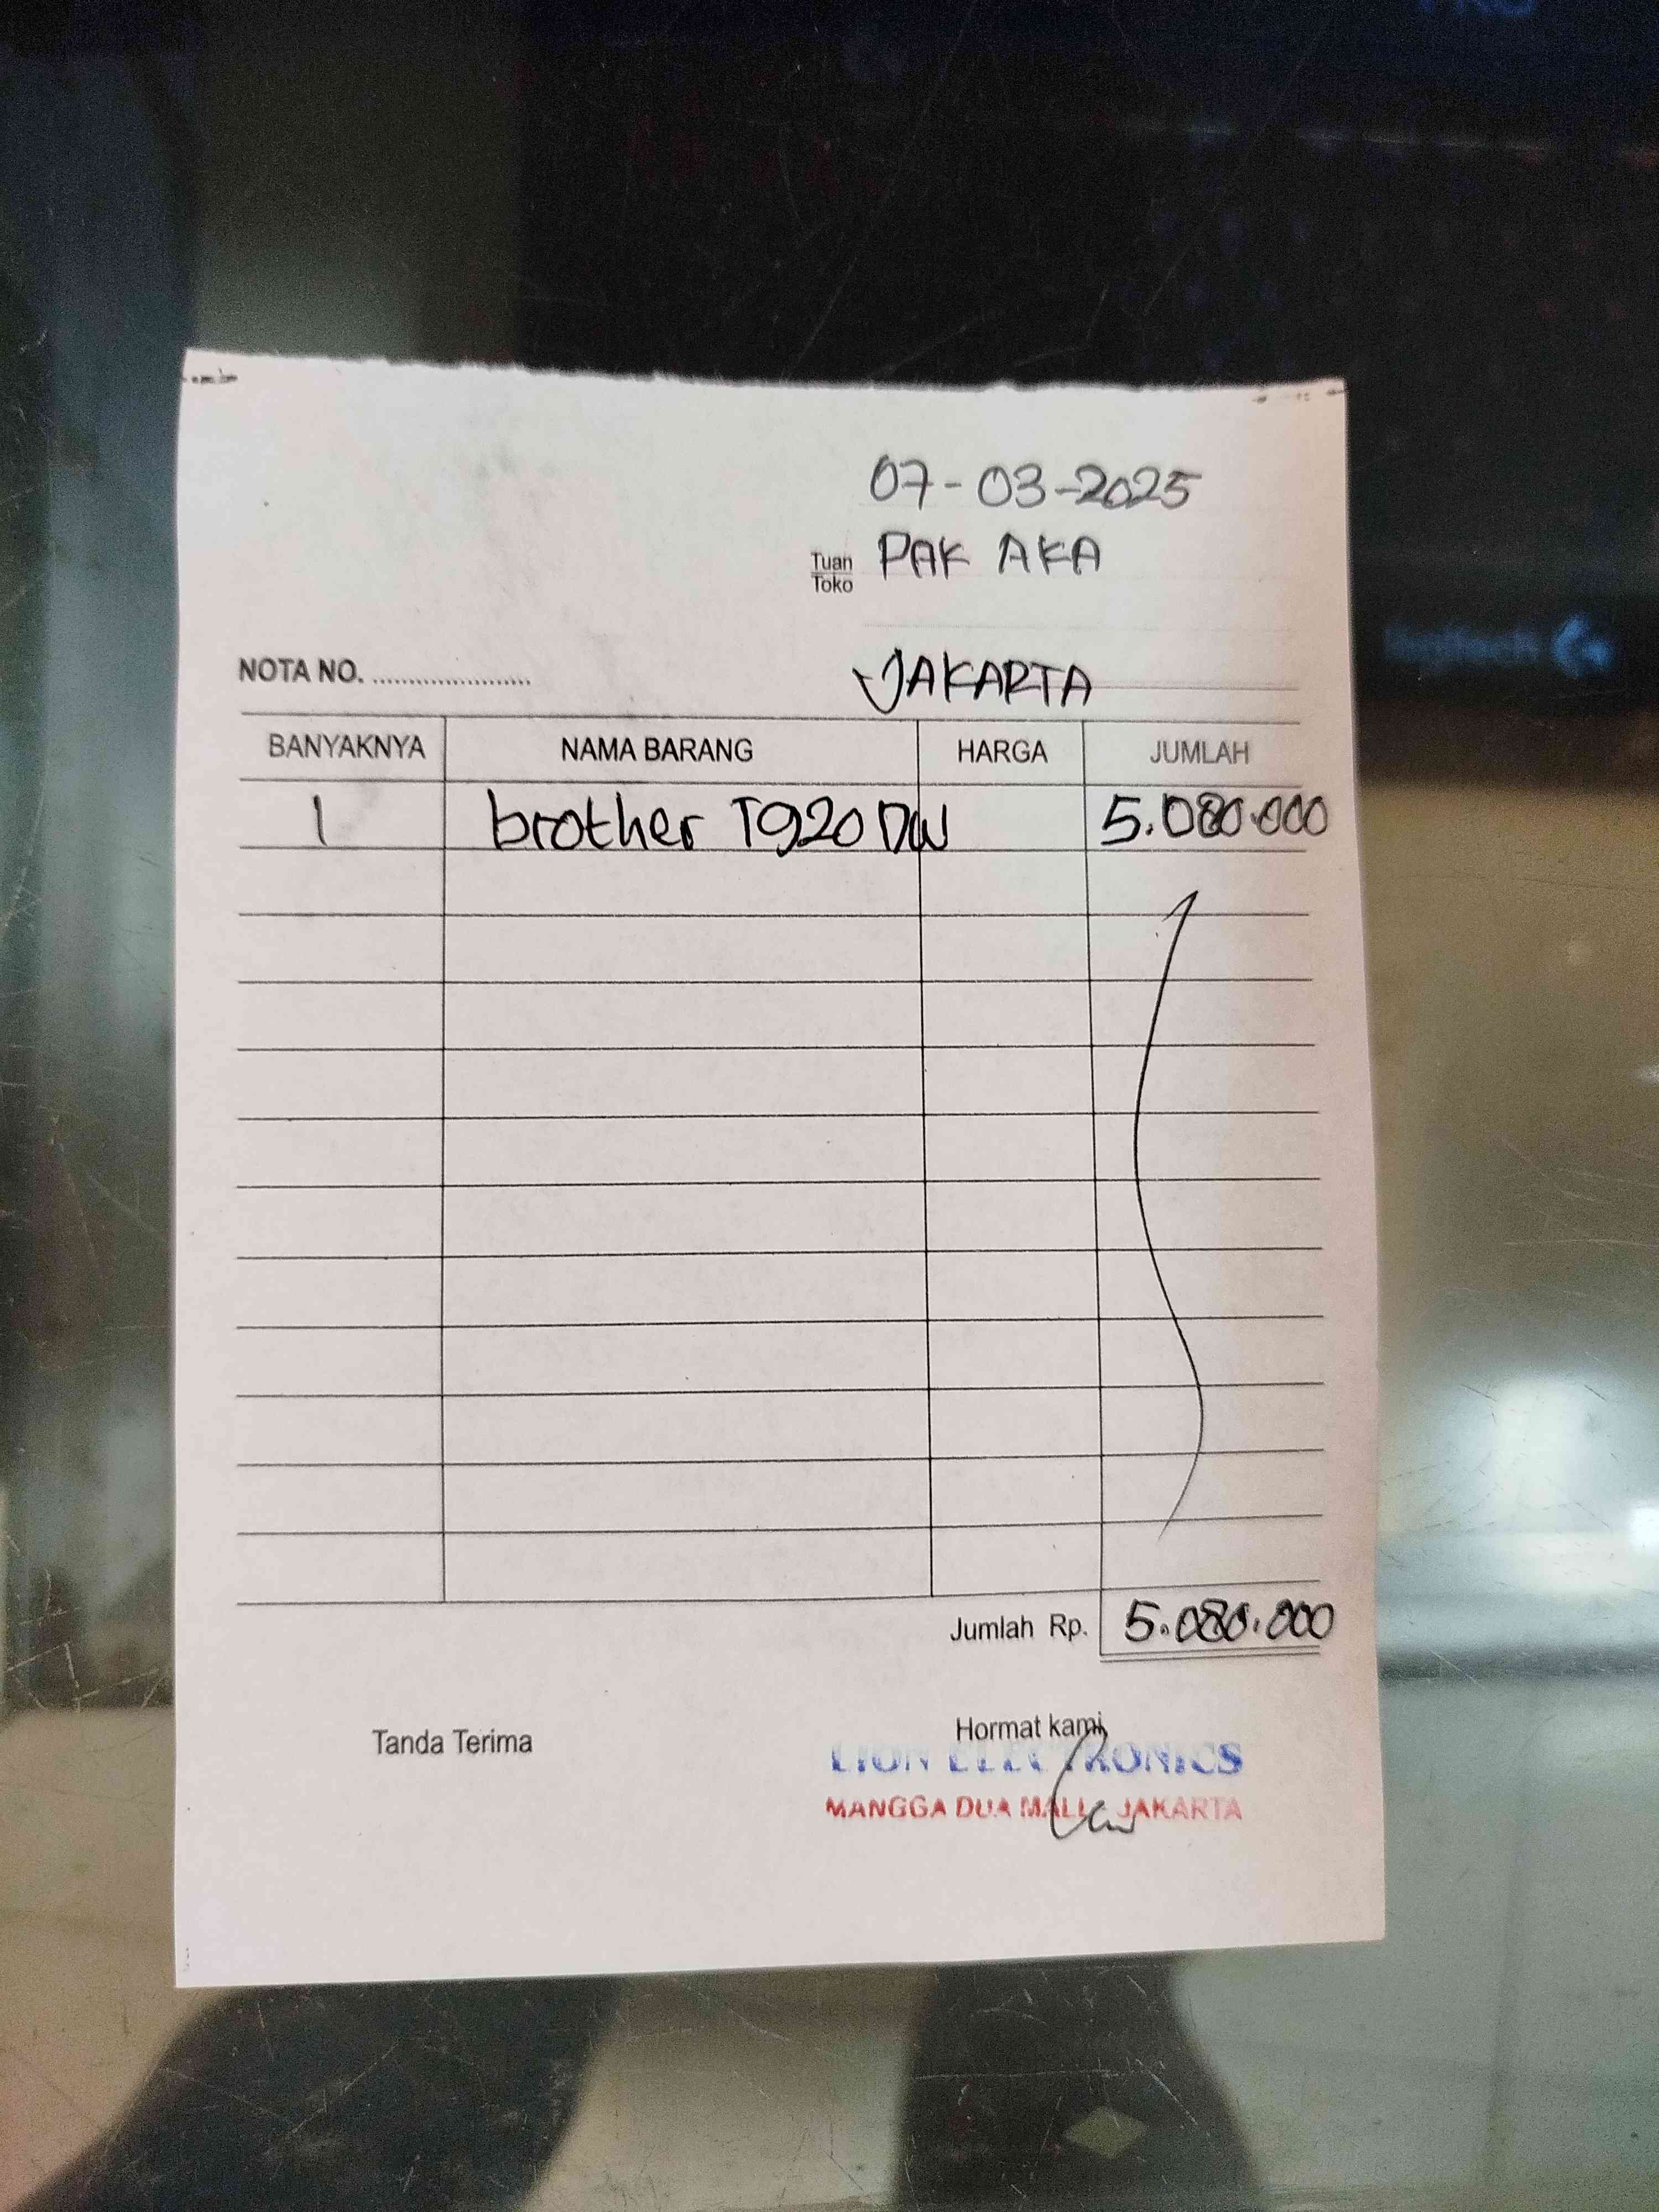 07-03-2025
Tuan
Toko
PAK AKA
NOTA NO. ......................
JAKARTA
BANYAKNYA NAMA BARANG HARGA JUMLAH
1 brother T920DW 5.080.000
Jumlah Rp. 5.080.000
Tanda Terima Hormat kami,
LION ELECTRONICS
MANGGA DUA MALL - JAKARTA
logitech G